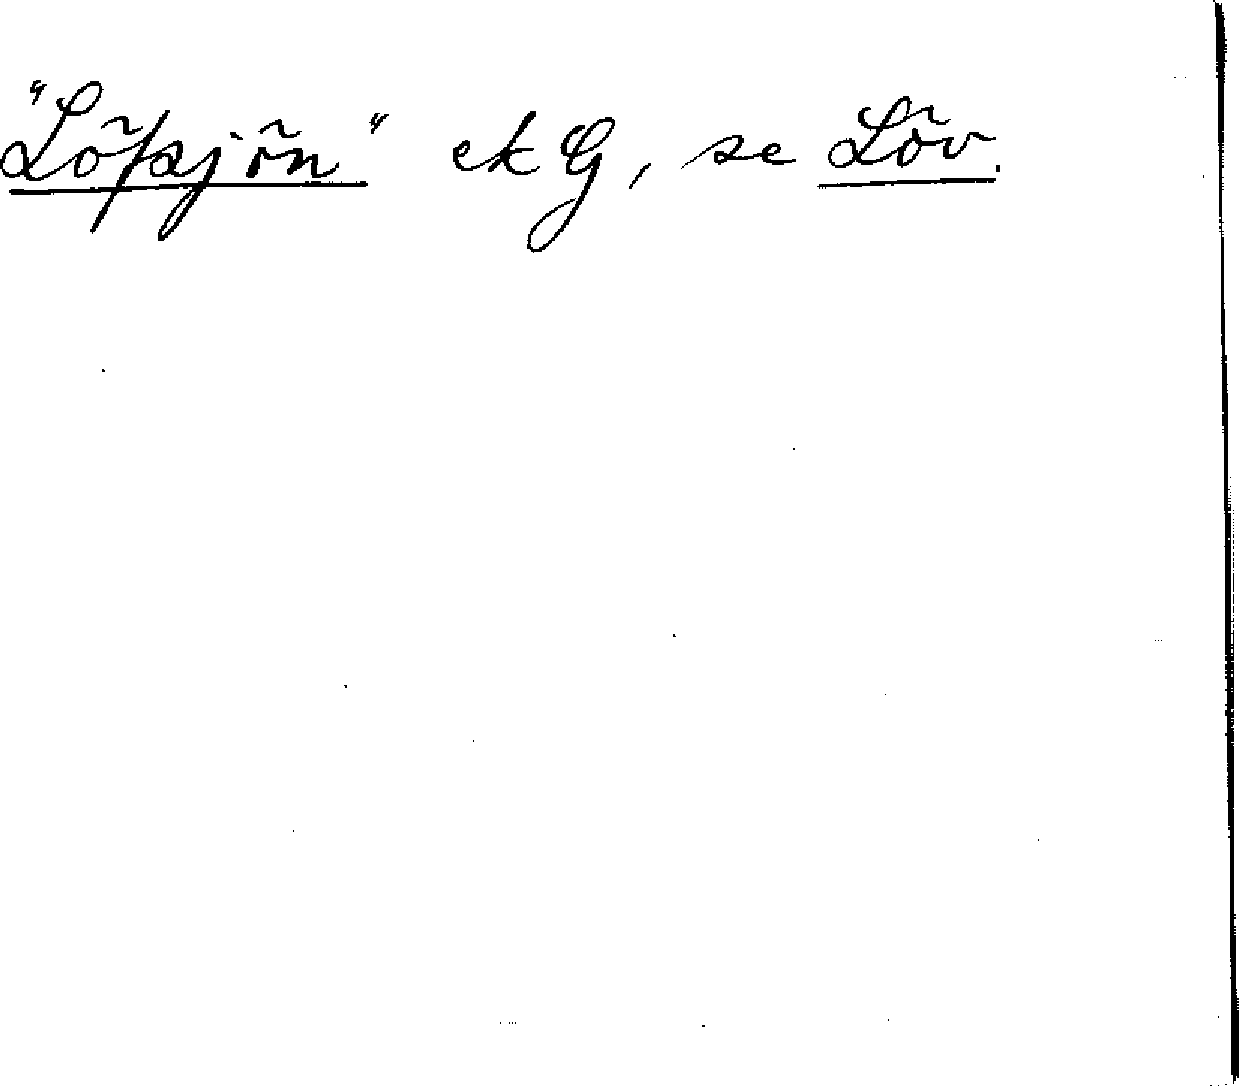 "Löpsjön" ek G, se Löv.